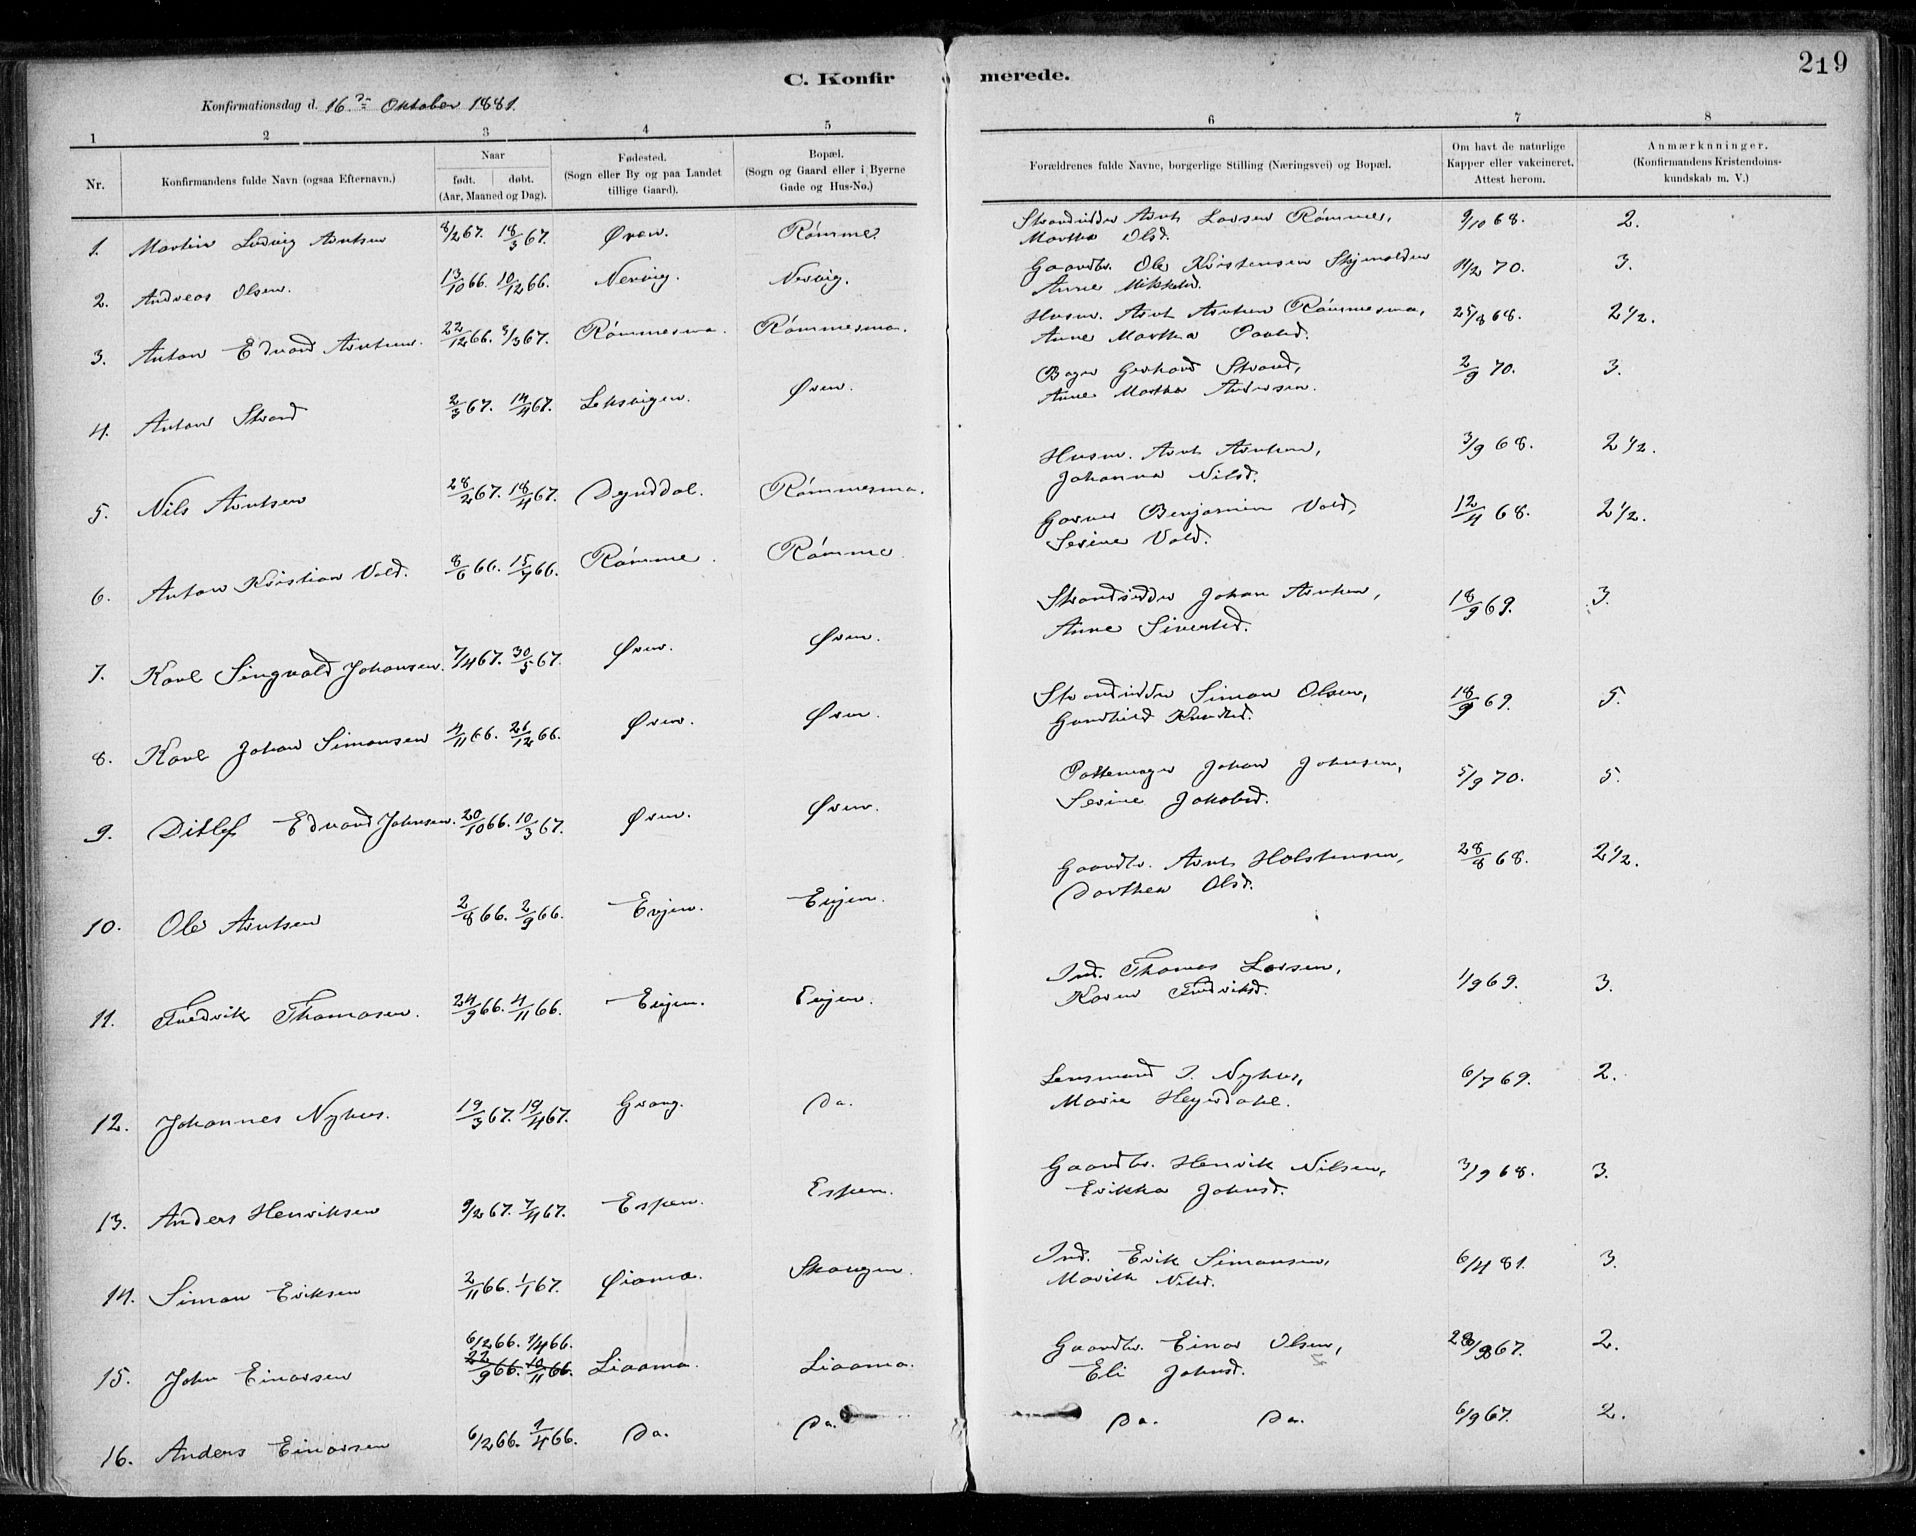 C. Konfirmerede.
219
Konfirmationsdag d. 16de Oktober 1881.
1 2 3 4 5 6 7 8
Nr.
Konfirmandens fulde Navn (ogsaa Efternavn.)
Naar
født. døbt.
(Aar, Maaned og Dag).
Fødested.
(Sogn eller By og paa Landet
tillige Gaard).
Bopæl.
(Sogn og Gaard eller i Byerne
Gade og Hus-No.)
Forældrenes fulde Navne, borgerlige Stilling (Næringsvei) og Bopæl.
Om havt de naturlige
Kapper eller vakcineret.
Attest herom.
Anmærknninger.
(Konfirmandens Kristendoms-
kundskab m. V.)
1. Martin Ludvig Arntsen 8/2 67. 18/3 67. Øren. Rømme. Strandsidder Arnt Larsen Rømme, 9/10 68. 2.
Martha Olsd.
2. Andreas Olsen. 13/10 66. 10/12 66. Nervig. Nervig. Gaardbr. Ole Kristensen 11/2 70. 3.
Anne Mikkelsd.
3. Anton Edvard Arntsen. 22/12 66. 3/3 67. Rømmesmo. Rømmesmo. Husm. Arnt Arntsen Rømmesmo, 25/8 68. 2 1/2.
Anne Martha Paulsd.
4. Anton Strand 2/3 67. 14/4 67. Leksvigen. Øren. Bager Gerhard Strand, 2/9 70. 3.
Anne Martha Andersen.
5. Nils Arntsen 28/2 67. 18/4 67. Dynddal. Rømmesmo. Husm. Arnt Arntsen, 3/9 68. 2 1/2.
Johanna Nilsd.
6. Anton Kristian Vold. 8/6 66. 15/7 66. Rømme. Rømme. Garver Benjamin Vold, 12/4 68. 2 1/2.
Serine Vold.
7. Karl Singvald Johansen 7/4 67. 30/5 67. Øren. Øren. Strandsidder Johan Arntsen, 18/9 69. 3.
Anne Sivertsd.
8. Karl Johan Simonsen 4/11 66. 26/12 66. Øren. Øren. Strandsidder Simon Olsen, 18/9 69. 5.
Gundhild Knudsd.
9. Ditlef Edvard Johnsen. 20/10 66. 10/3 67. Øren. Øren. Pottemager Johan Johnsen, 5/9 70. 5.
Serine Jakobsd.
10. Ole Arntsen 2/8 66. 2/9 66. Evjen. Evjen. Gaardbr. Arnt Holstensen, 28/8 68. 2 1/2.
Dorthea Olsd.
11. Fredrik Thomasen. 24/9 66. 4/11 66. Evjen. Evjen. Ind. Thomas Larsen, 1/9 69. 3.
Karen Fredriksd.
12. Johannes Nyhus. 19/3 67. 19/4 67. Grang. Do. Lensmand I. Nyhus, 6/7 69. 2.
Marie Heyerdahl.
13. Anders Henriksen 9/2 67. 7/4 67. Espen. Espen. Gaardbr. Henrik Nilsen, 3/9 68. 3.
Erikka Johnsd.
14. Simon Eriksen 2/11 66. 1/1 67. Øiamo. Skaugen. Ind. Erik Simonsen, 6/4 81. 3.
Marith Nilsd.
6/2 66. 1/4 66.
15. John Einarsen 22/9 66. 10/11 66. Liaamo. Liaamo. Gaardbr. Einar Olsen, 28/8 67. 2.
Eli Johnsd.
16. Anders Einarsen 6/2 66. 1/4 66. Do. Do. Do. Do. 6/9 67. 2.